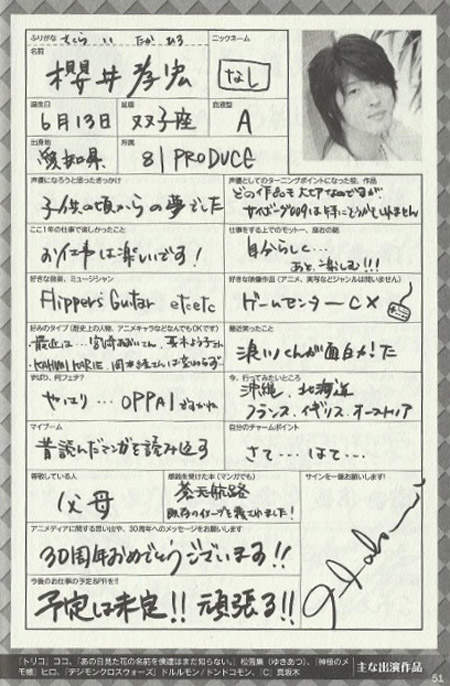 ふりがな さくらい たかひろ
ニックネーム
名前
櫻井孝宏
なし
誕生日
6月13日
星座
双子座
血液型
A
出身地
愛知県
所属
81 PRODUCE
声優になろうと思ったきっかけ
子供の頃からの夢でした
声優としてのターニングポイントになった役、作品
どの作品も大切なのですが
サイボーグ009は特にとうかもしれません
ここ1年の仕事で楽しかったこと
お仕事は楽しいです!
仕事をする上でのモットー、座右の銘
自分らしく…
あと、楽しむ!!!
好きな音楽、ミュージシャン
Flippers Guitar etc etc
好きな映像作品(アニメ、実写などジャンルは問いません)
ゲームセンターCX
好みのタイプ(歴史上の人物、アニメキャラなどなんでもOKです)
最近は…宮崎あおいさん、
KAHIMI KARIE、
最近笑ったこと
浪川くんが面白かった
やっぱり、何フェチ?
やはり… OPPAIですかね
今、行ってみたいところ
沖縄、北海道
フランス、イギリス、オーストリア
マイブーム
昔読んだマンガを読み返す
自分のチャームポイント
さて…はて…
尊敬している人
父母
感銘を受けた本(マンガでも)
蒼天航路
既存のイメージを覆されました!
サインを一筆お願いします!
アニメディアに関する思い出や、30周年へのメッセージをお願いします
30周年おめでとうございます!!
今後のお仕事の予定&PRを!!
予定は未定!! 頑張る!!
『トリコ』ココ、『あの日見た花の名前を僕達はまだ知らない。』松雪集(ゆきあつ)、『神様のメ
モ帳』ヒロ、『デジモンクロスウォーズ』ドルルモン/トンドコモン、『C』真坂木
主な出演作品
51